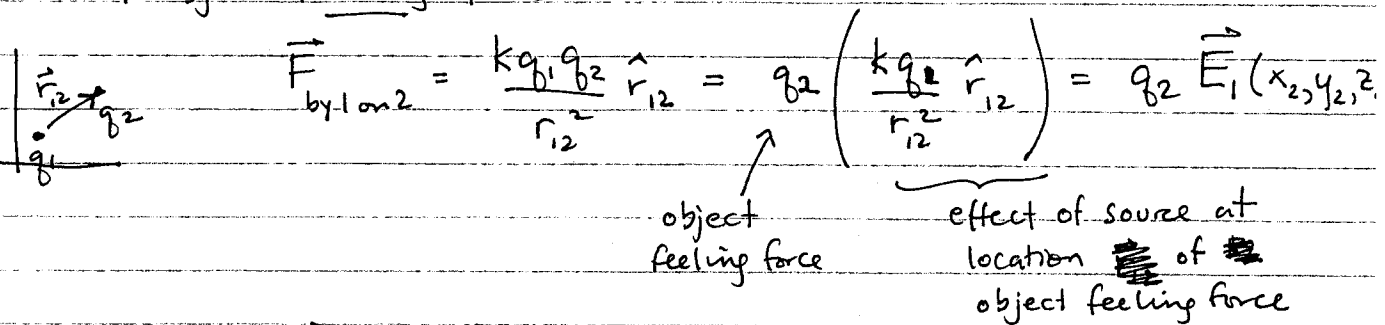 r⃗₁₂ q₂ q₁
F⃗ by 1 on 2 = kq₁q₂/r₁₂² r̂₁₂ = q₂ (kq₁/r₁₂² r̂₁₂) = q₂ E⃗₁(x₂,y₂,z
object feeling force
effect of source at
location of
object feeling force